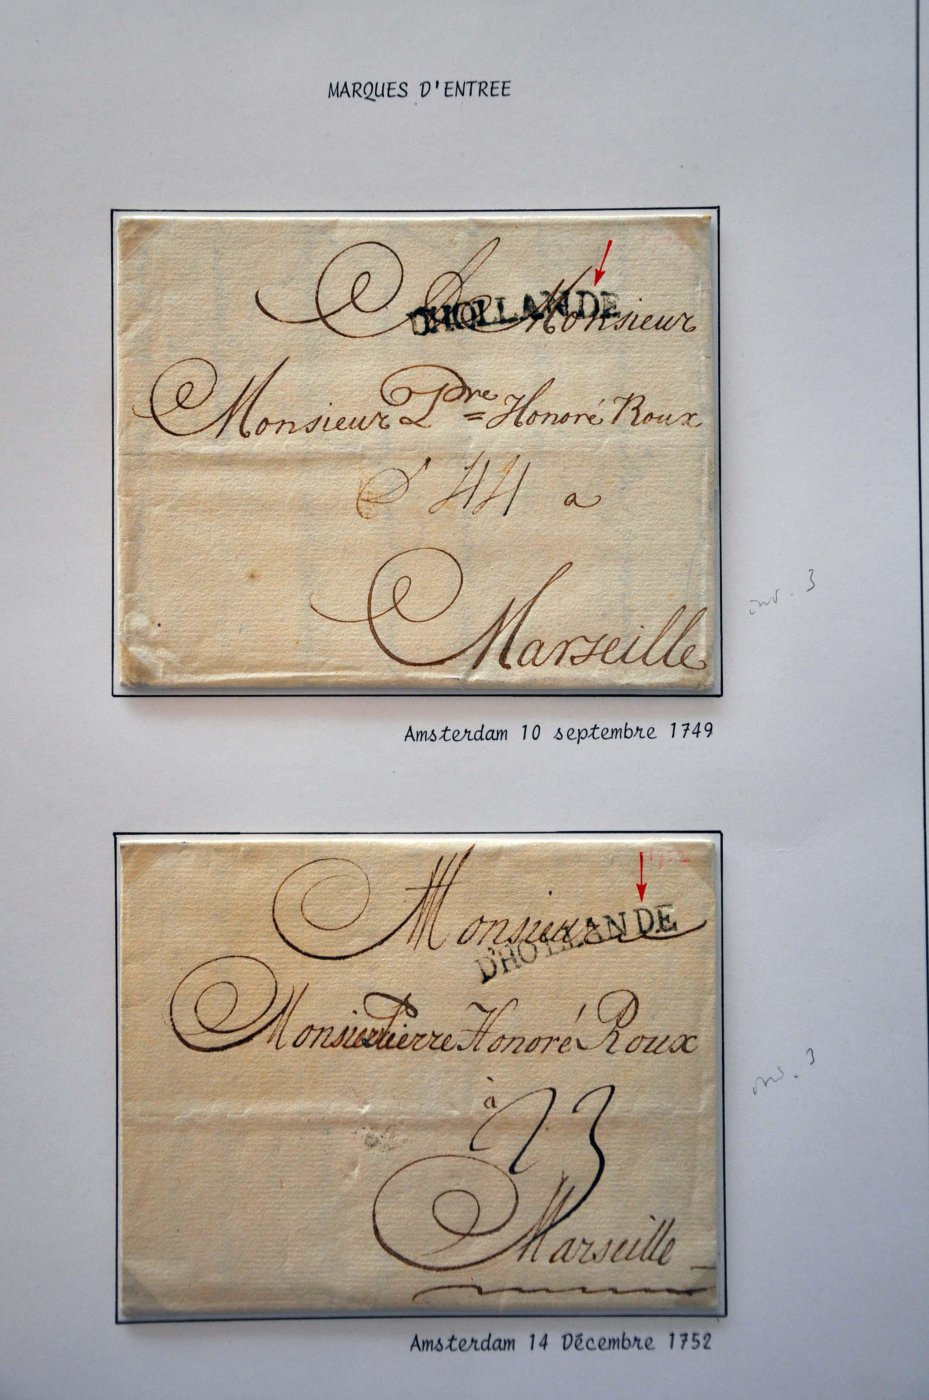 MARQUES D'ENTREE
A Monsieur
D'HOLLANDE
Monsieur Pre= Honoré Roux
44 a
Marseille
ind. 3
Amsterdam 10 septembre 1749
1752
Monsieur
D'HOLLANDE
Monsieur Pierre Honoré Roux
à
23
Marseille
ind. 3
Amsterdam 14 Décembre 1752